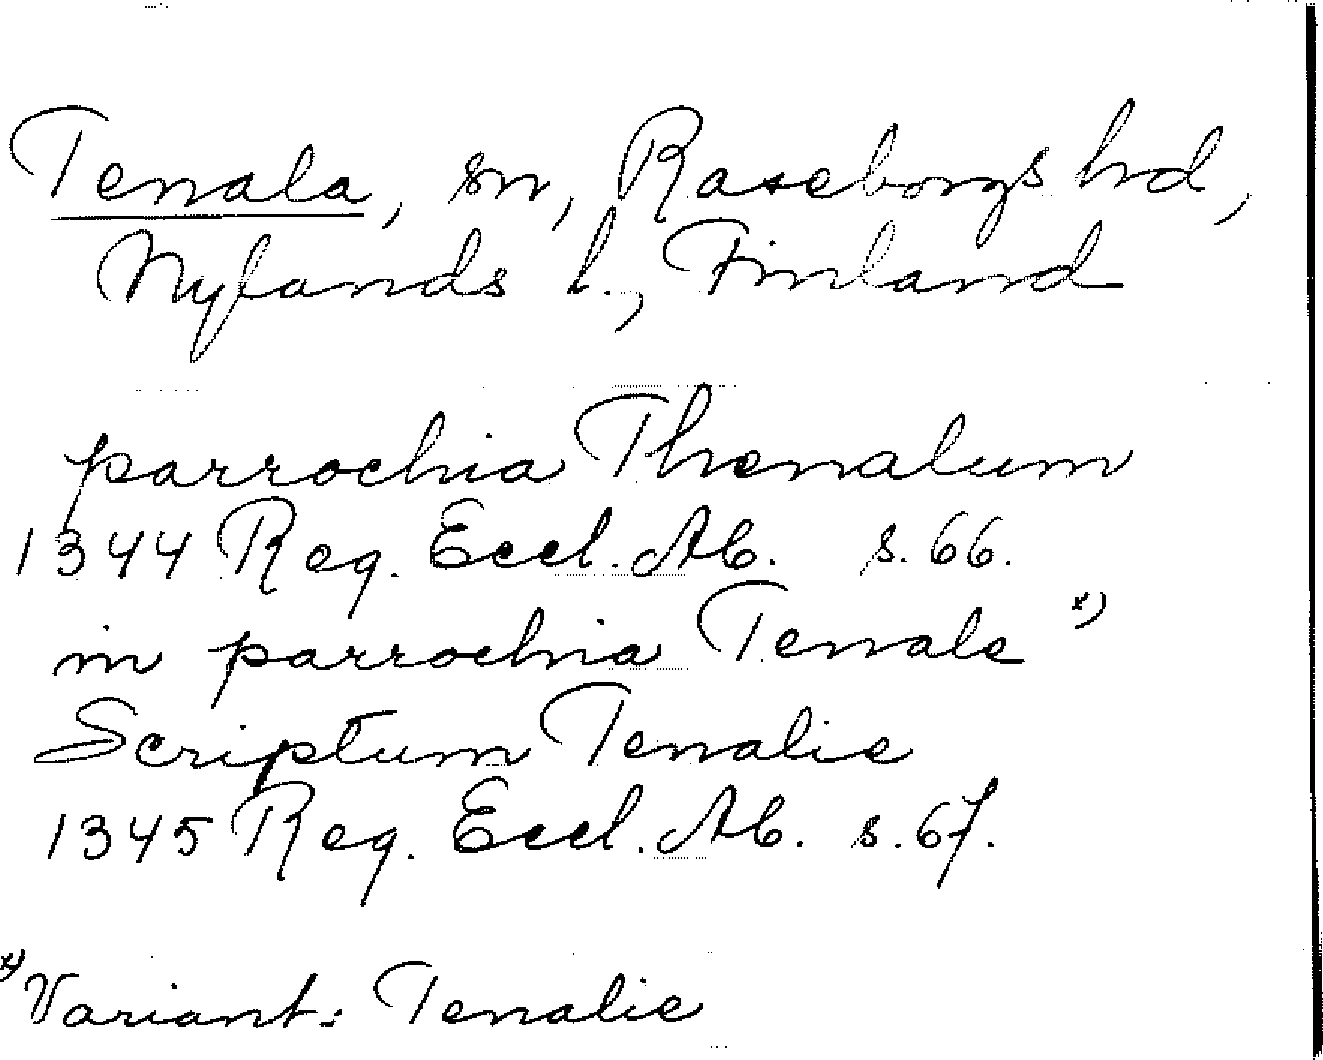 Tenala, sn, Raseborgs hrd,
Nylands l., Finland
parrochia Thenalum
1344 Reg. Eccl. Ab. s. 66.
in parrochia Tenale x)
Scriptum Tenalie
1345 Reg. Eccl. Ab. s. 67.
x) Variant: Tenalie